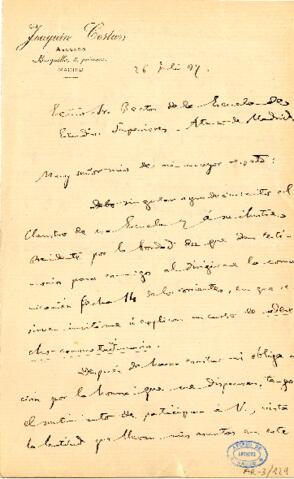 Joaquín Costa
ABOGADO
Barquillo, 5, primero
MADRID
26 Julio 97.
Sr. Rector de la Escuela de
Estudios Superiores. Ateneo de Madrid
Muy señor mio de mi mayor respeto:
Debo singular agradecimiento al
Claustro de esa Escuela y á su ilustre
Presidente por la bondad de que dan testi-
monio para conmigo al dirigirme la comu-
nicación fecha 14 de los corrientes, en que se
sirven invitarme á explicar un curso de
consuetudinario.
Después de hacer constar mi obliga-
ción por la honra que me dispensan, tengo
el sentimiento de participar á V., vista
la lentitud que llevan mis asuntos en este